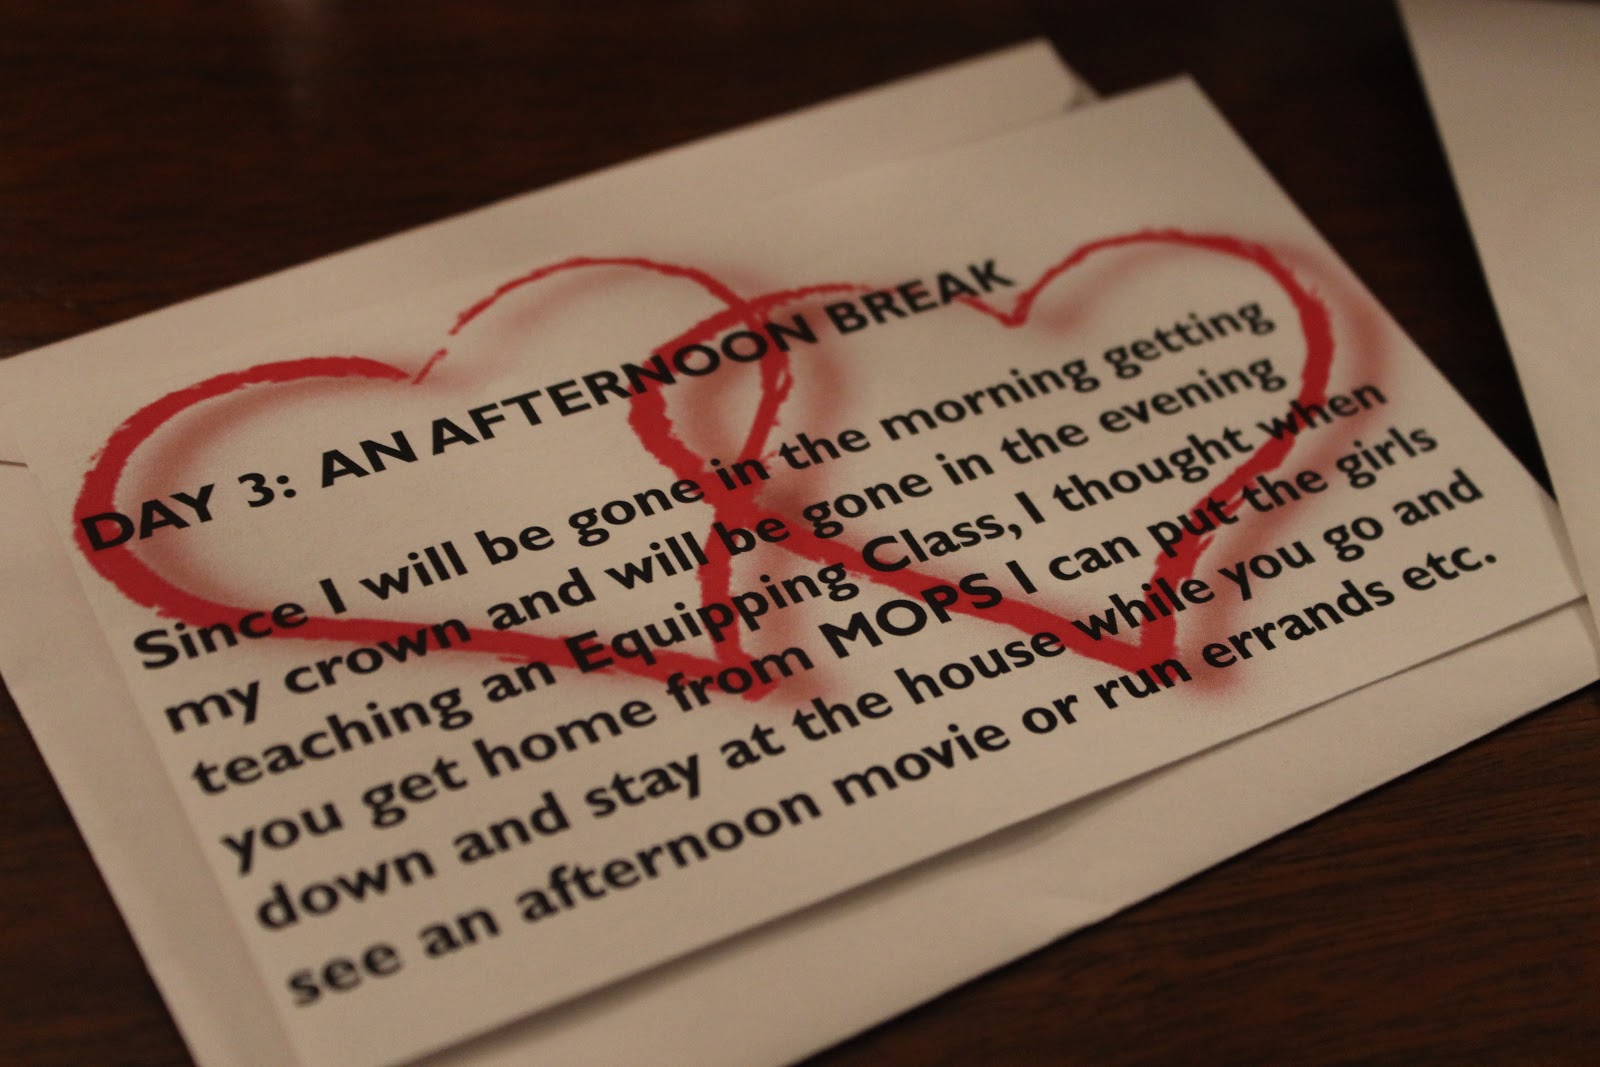 DAY 3: AN AFTERNOON BREAK
Since I will be gone in the morning getting
my crown and will be gone in the evening
teaching an Equipping Class, I thought when
you get home from MOPS I can put the girls
down and stay at the house while you go and
see an afternoon movie or run errands etc.